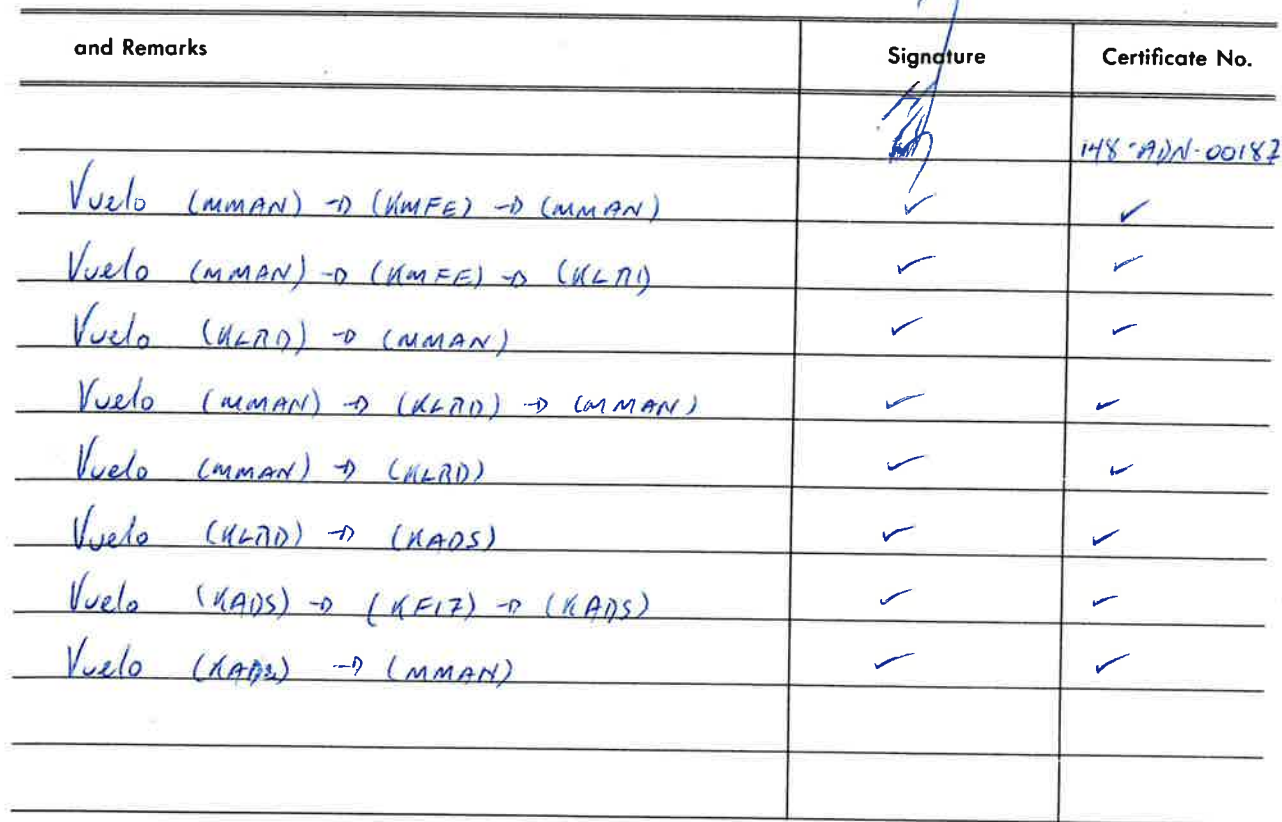 and Remarks Signature Certificate No.
148-ADN-00187
Vuelo (MMAN) → (KMFE) → (MMAN) ✓ ✓
Vuelo (MMAN) → (KMFE) → (KLRD) ✓ ✓
Vuelo (KLRD) → (MMAN) ✓ ✓
Vuelo (MMAN) → (KLRD) → (MMAN) ✓ ✓
Vuelo (MMAN) → (KLRD) ✓ ✓
Vuelo (KLRD) → (KADS) ✓ ✓
Vuelo (KADS) → (KF17) → (KADS) ✓ ✓
Vuelo (KADS) → (MMAN) ✓ ✓